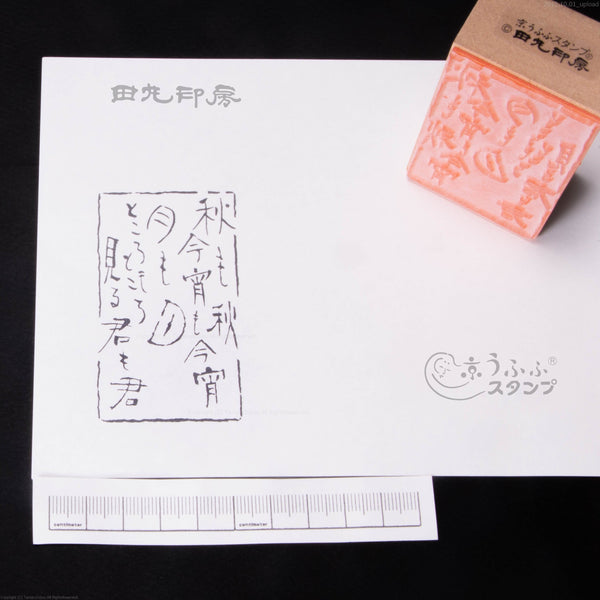 京うふふスタンプ®
©田丸印房
田丸印房
秋も秋
今宵も今宵
月も月
ところもところ
見る君も君
京うふふ®
スタンプ
centimeter
centimeter